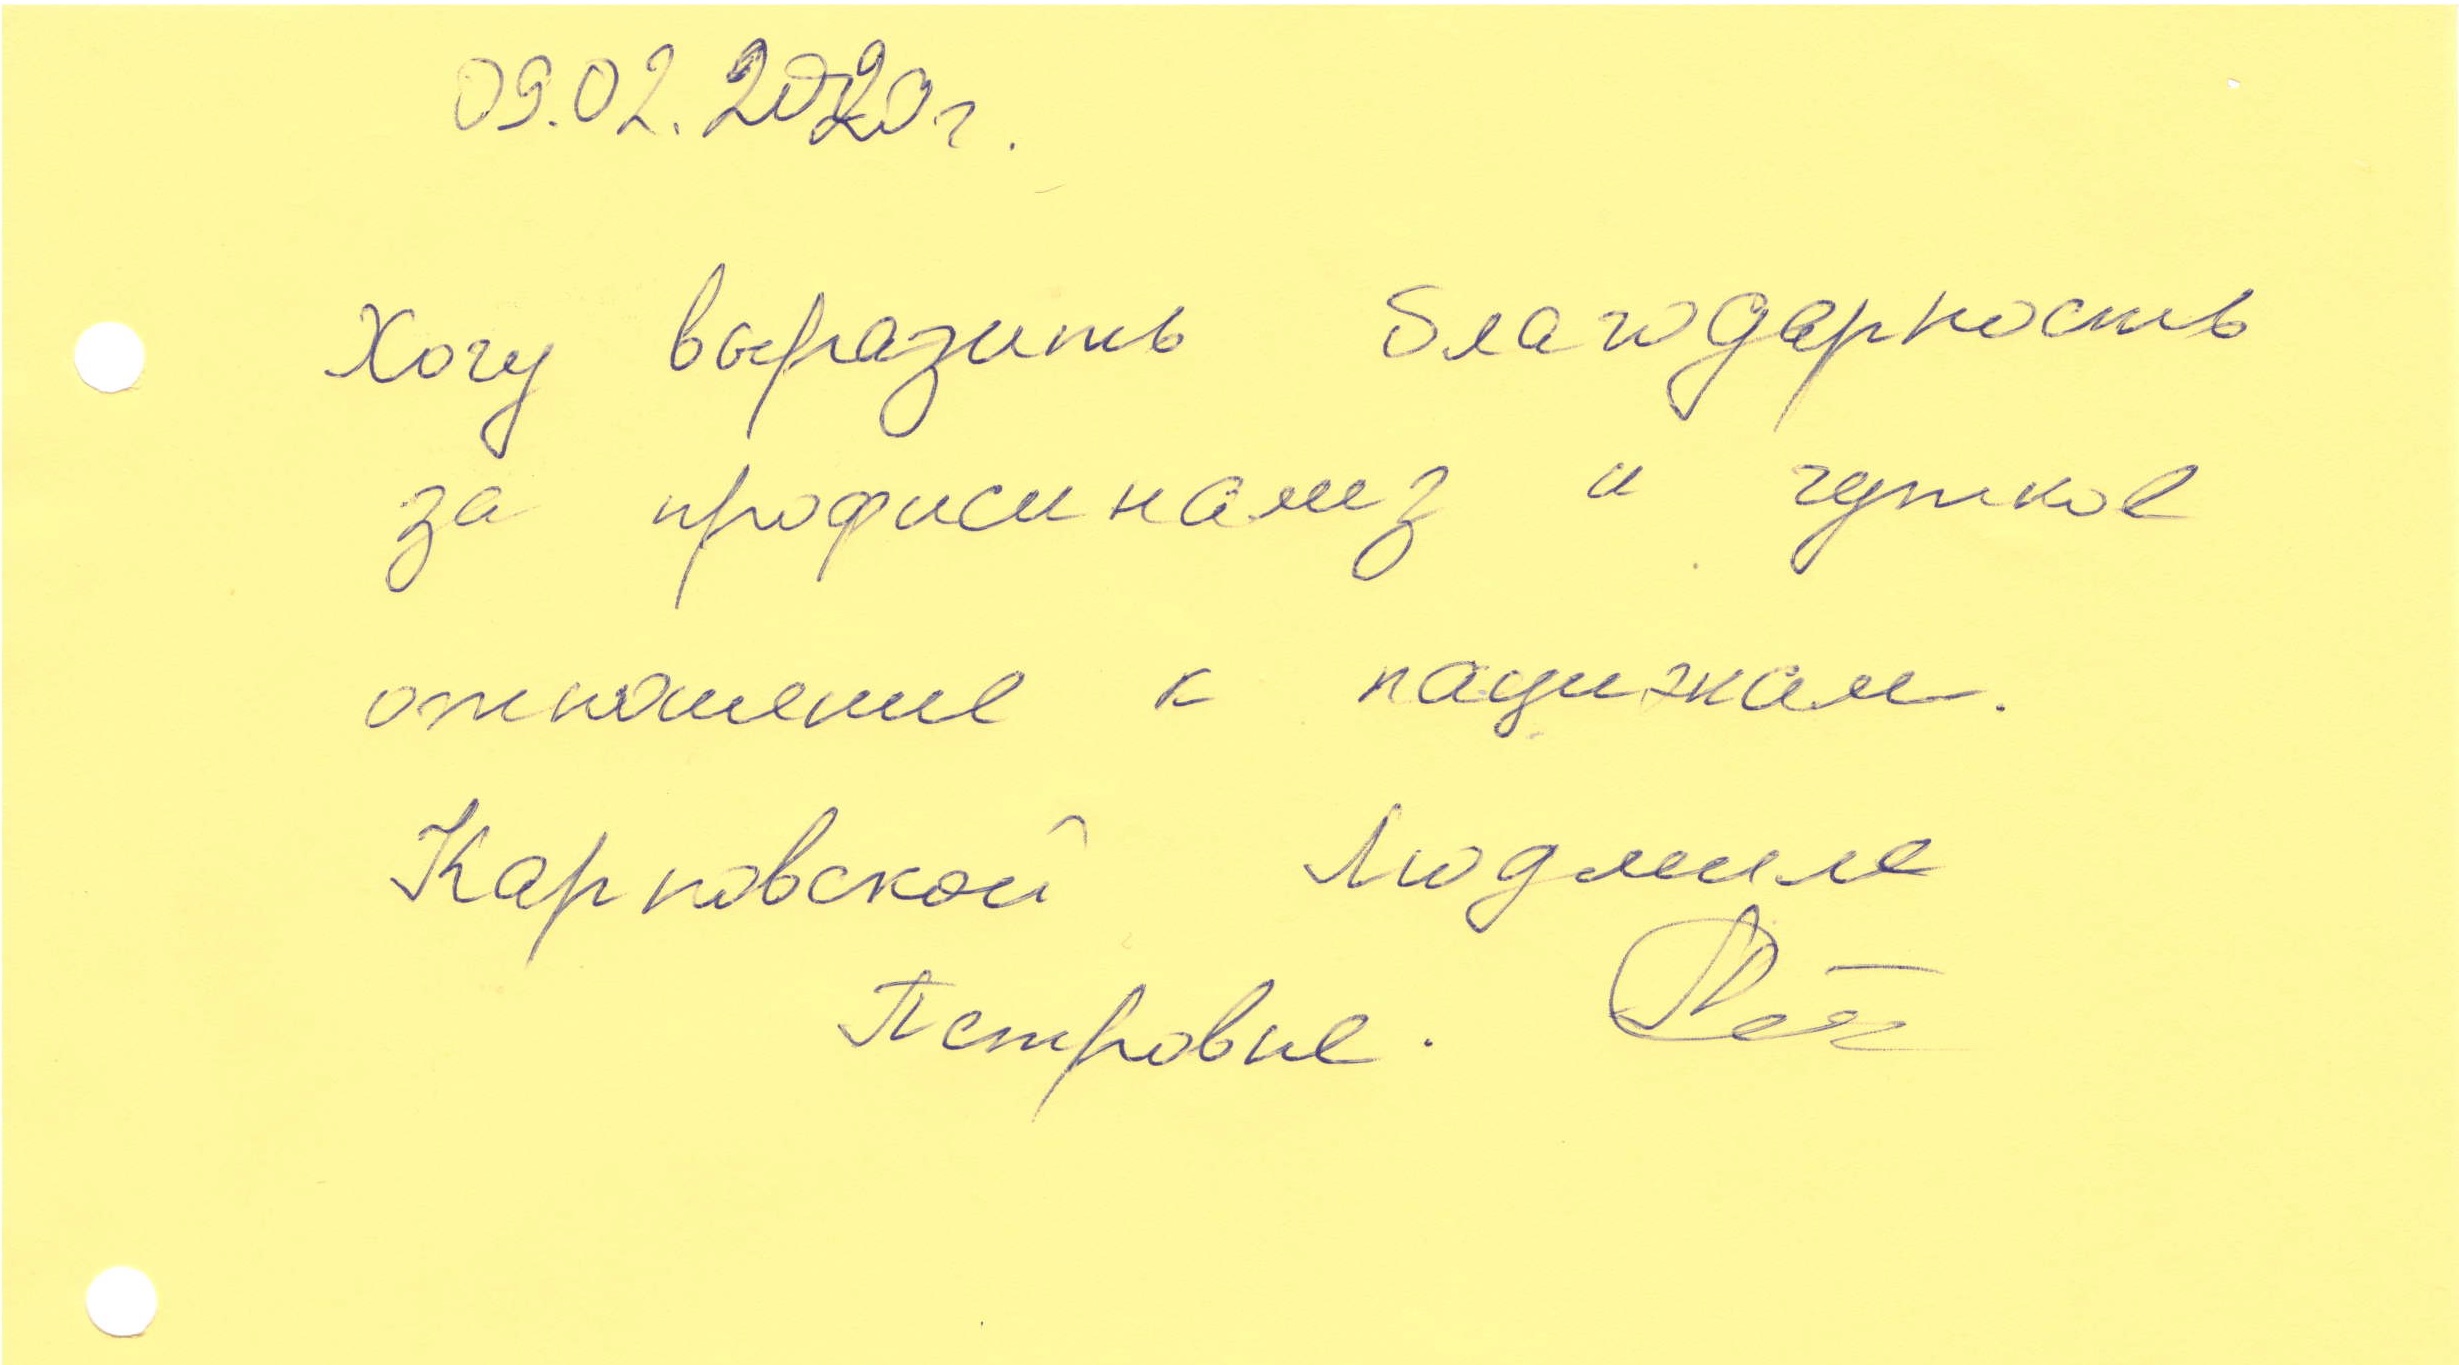 09.02.2020г.
Хочу выразить благодарность
за профисинализ и чуткое
отношение к пациэнкам.
Карповской Людмиле
Петровне.